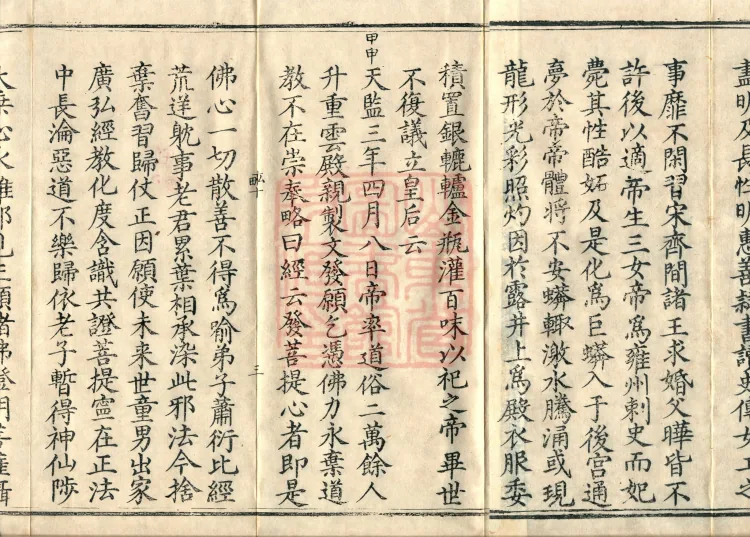 盡明及長性明惠善隸書讀史傳女工之
事靡不閑習宋齊間諸王求婚父曄皆不
許後以適帝生三女帝爲雍州刺史而妃
薨其性酷妬及是化爲巨蟒入于後宮通
夢於帝帝體將不安蟒輙激水騰涌或現
龍形光彩照灼因於露井上爲殿衣服委
積置銀轆轤金瓶灌百味以祀之帝畢世
不復議立皇后云
甲申
天監三年四月八日帝率道俗二萬餘人
升重雲殿親製文發願乞憑佛力永棄道
教不在崇奉略曰經云發菩提心者即是
三
佛心一切散善不得爲喻弟子蕭衍比經
荒迷躭事老君累葉相承染此邪法今捨
棄舊習歸仗正因願使未来世童男出家
廣弘經教化度含識共證菩提寧在正法
中長淪惡道不樂歸依老子暫得神仙陟
大乗心永離邪見正願諸佛證明菩薩攝